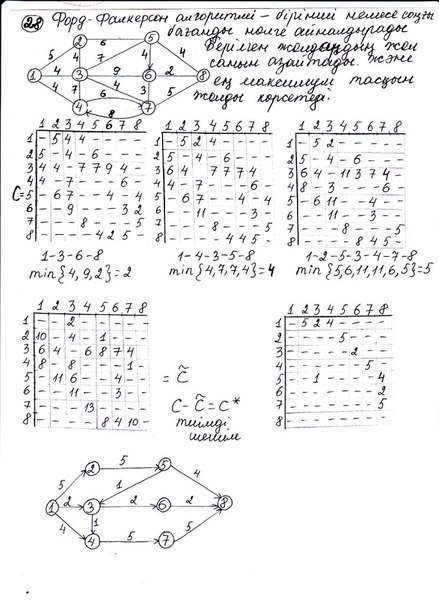 28 Форд-Фалкерсон алгоритмі – бірінші немесе соңғы
бағанды нөлге айналдырады
Берілген жолдардың жол
санын азайтады. және
ең максимум тасқын
жолды көрсетеді.
1 2 3 4 5 6 7 8
1 - 5 4 4 - - - -
2 5 - 4 - 6 - - -
3 4 4 - 7 7 9 4 -
4 4 - 7 - - - 6 -
C=5 - 6 7 - - 4 - 4
6 - - 9 - - - 3 2
7 - - - 8 - - - 5
8 - - - - 4 2 5 -
1-3-6-8
min{4,9,2}=2
1 2 3 4 5 6 7 8
- 5 2 4 - - - -
5 - 4 - 6 - - -
6 4 - 7 7 7 4 -
4 - 7 - - - 6 -
- 6 7 - - 4 - 4
- - 11 - - - 3 -
- - - 8 - - - 5
- - - - 4 4 5 -
1-4-3-5-8
min{4,7,7,4}=4
1 2 3 4 5 6 7 8
- 5 2 - - - - -
5 - 4 - 6 - - -
6 4 - 11 3 7 4 -
8 - 3 - - - 6 -
- 6 11 - - 4 - -
- - 11 - - - 3 -
- - - 8 - - - 5
- - - - 8 4 5 -
1-2-5-3-4-7-8
min{5,6,11,11,6,5}=5
1 2 3 4 5 6 7 8
1 - - 2 - - - - -
2 10 - 4 - 1 - - -
3 6 4 - 6 8 7 4 -
4 8 - 8 - - - 1 -
5 - 11 6 - - 4 - -
6 - - 11 - - - 3 -
7 - - - 13 - - - -
8 - - - - 8 4 10 -
= C̃
C - C̃ = C*
тиімді
шешім
1 2 3 4 5 6 7 8
1 - 5 2 4 - - - -
2 - - - - 5 - - -
3 - - - - - 2 - -
4 - - - - - - 5 -
5 - - 1 - - - - 4
6 - - - - - - - 2
7 - - - - - - - 5
8 - - - - - - - -